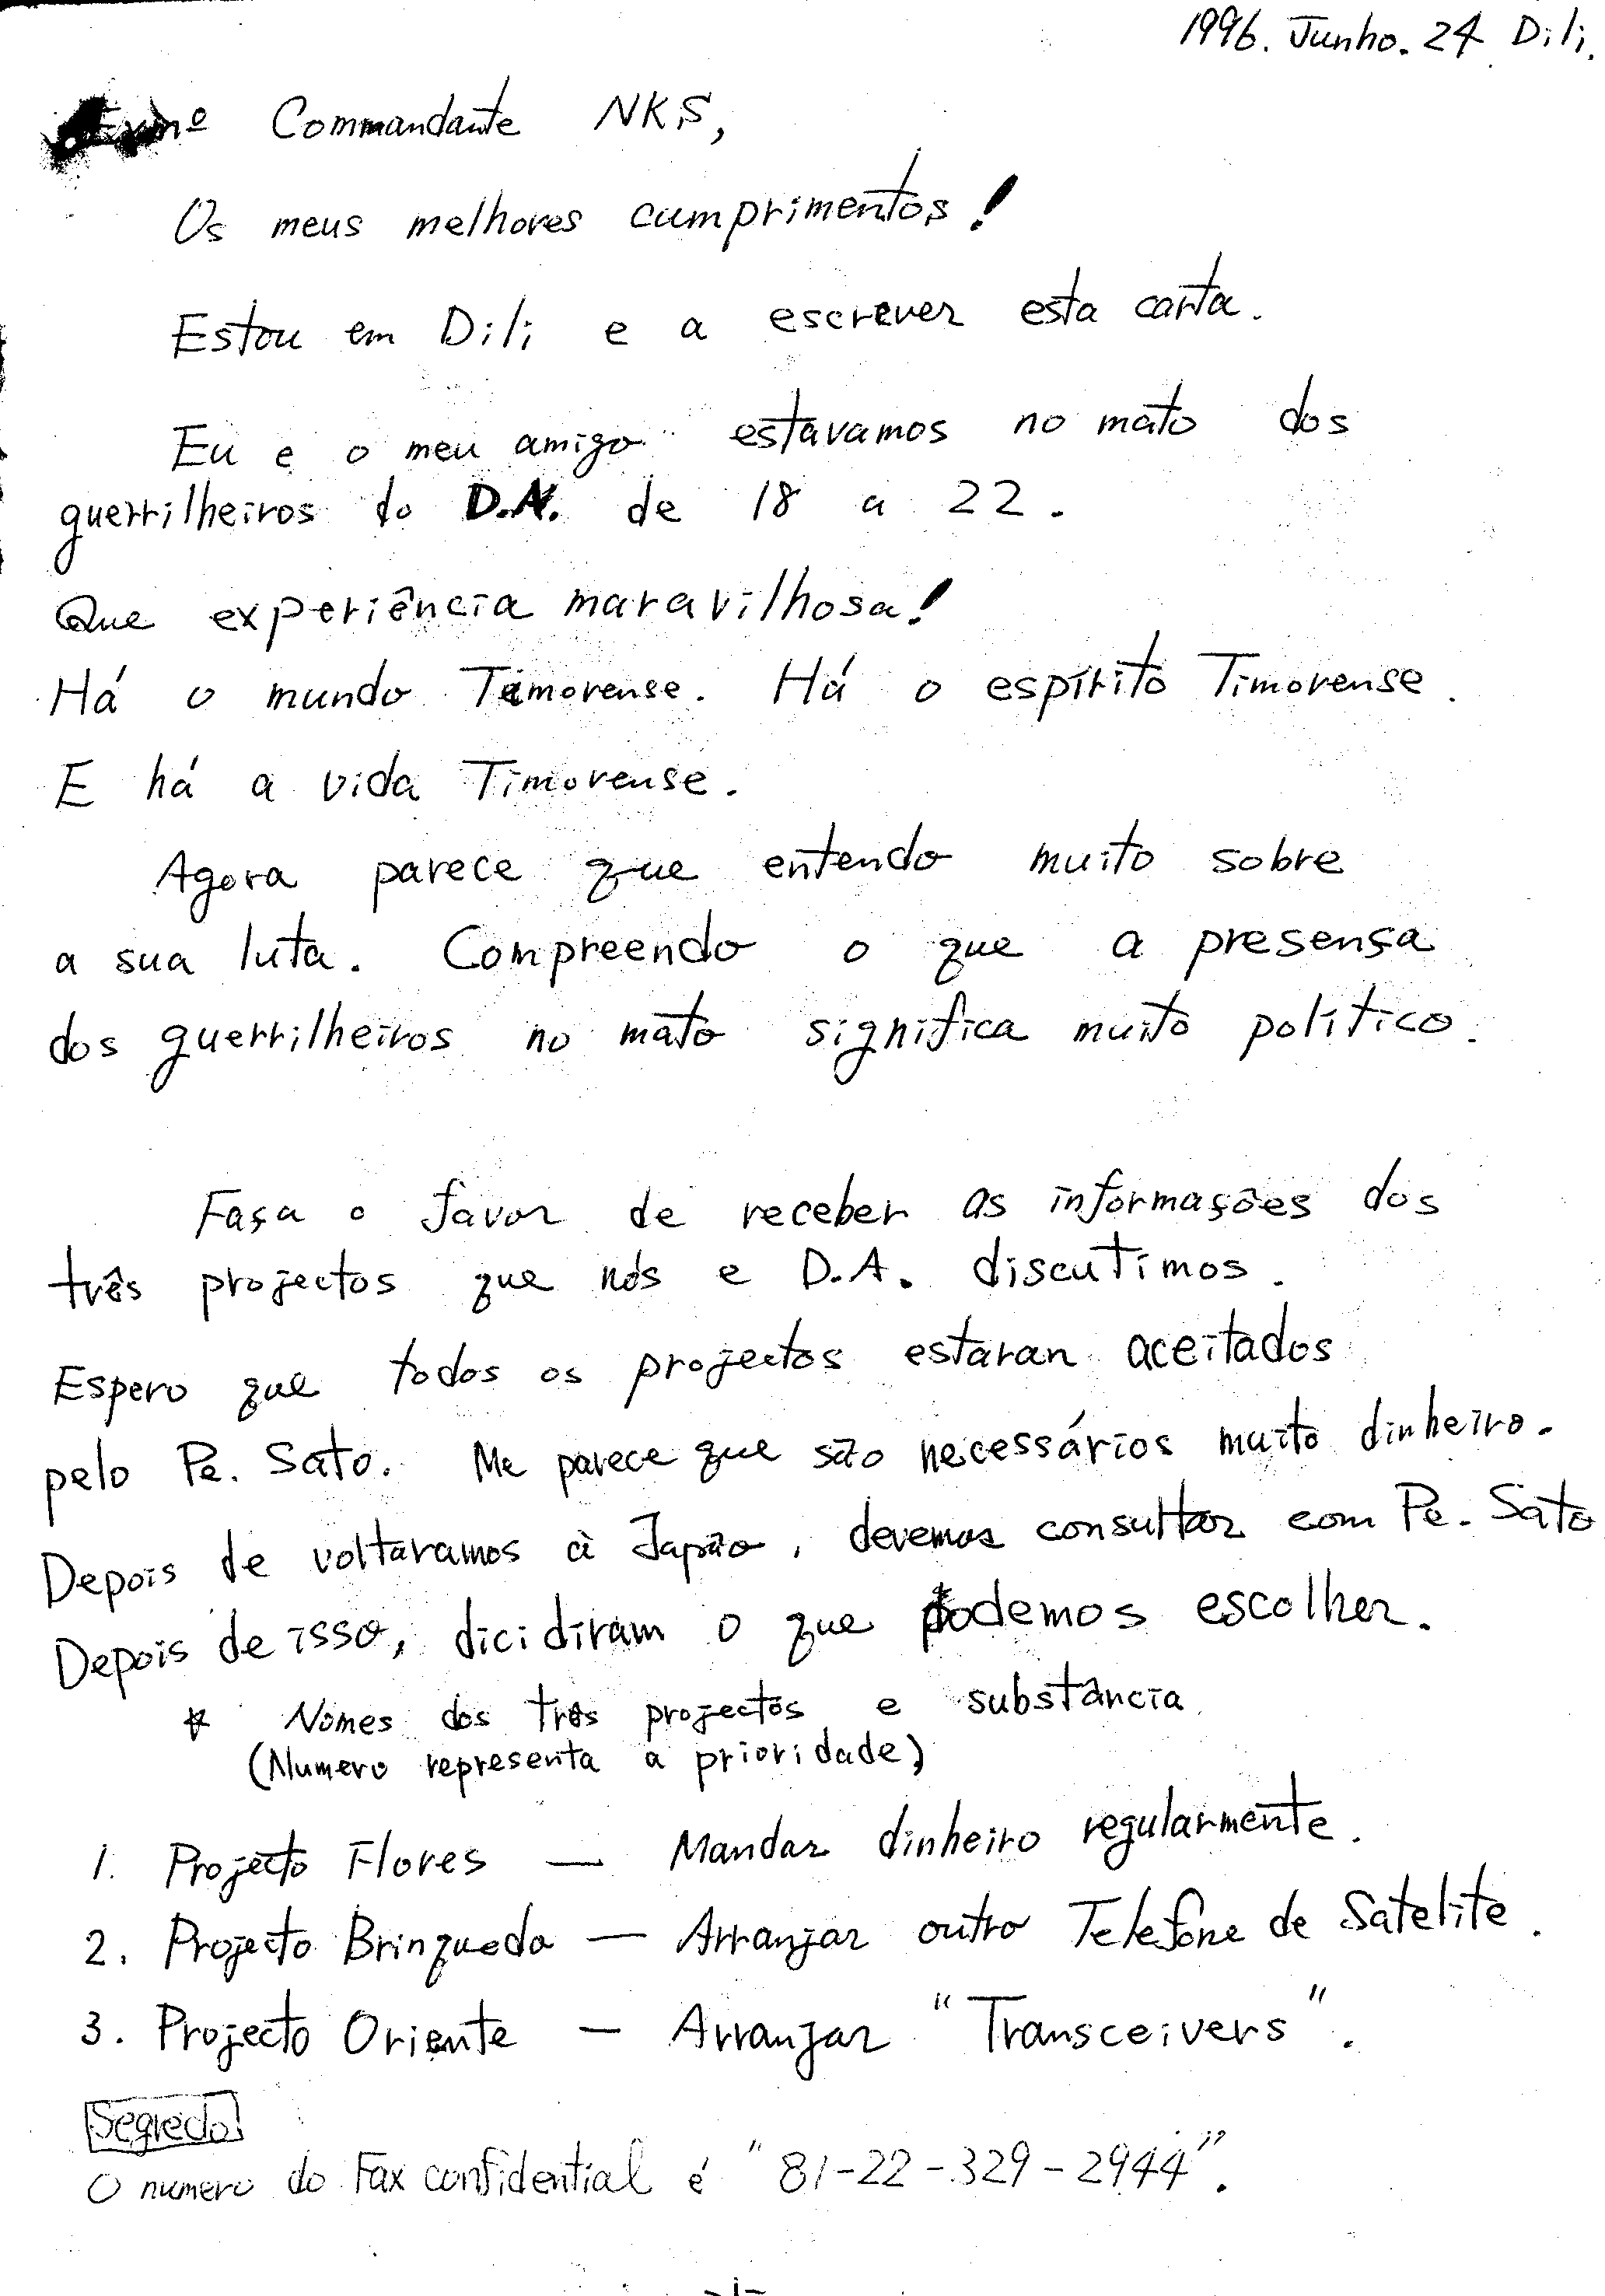 1996. Junho. 24 Dili.
Exmº Commandante NKS,
Os meus melhores cumprimentos!
Estou em Dili e a escrever esta carta.
Eu e o meu amigo estavamos no mato dos
guerrilheiros do D.A. de 18 a 22.
Que experiência maravilhosa!
Há o mundo Timorense. Há o espírito Timorense.
E há a vida Timorense.
Agora parece que entendo muito sobre
a sua luta. Compreendo o que a presença
dos guerrilheiros no mato significa muito político.
Faça o favor de receber as informações dos
três projectos que nós e D.A. discutimos.
Espero que todos os projectos estaran aceitados
pelo Pe. Sato. Me parece que são necessários muito dinheiro.
Depois de voltaramos à Japão, devemos consultar com Pe. Sato
Depois de isso, dicidiram o que podemos escolher.
* Nomes dos três projectos e substância
(Numero representa a prioridade)
1. Projecto Flores — Mandar dinheiro regularmente.
2. Projecto Brinquedo — Arranjar outro Telefone de Satelite.
3. Projecto Oriente — Arranjar "Transceivers".
Segredo
O numero do Fax confidential é "81-22-329-2944".